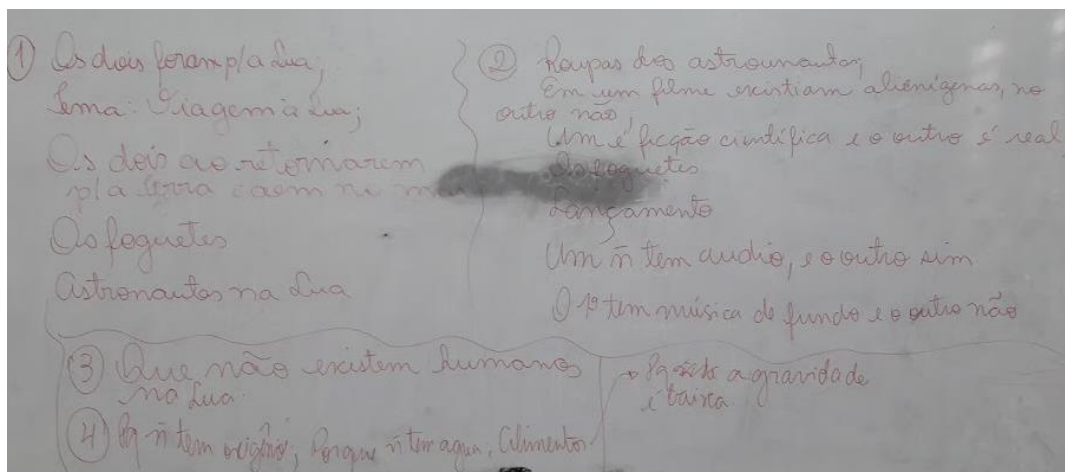 ① Os dois foram p/ a Lua;
Tema: Viagem à Lua;
Os dois ao retornarem
p/ a terra caem no
Os foguetes
Astronautas na Lua
② Roupas dos astrounautas;
Em um filme existiam alienígenas, no
outro não;
Um é ficção científica e o outro é real
Os foguetes
Lançamento
Um ñ tem audio, e o outro sim
O 1º tem música de fundo e o outro não
③ Que não existem humanos
na Lua.
④ Pq ñ tem oxigênio, Porque ñ tem agua, Alimentos
→ Pq a gravidade
é baixa.